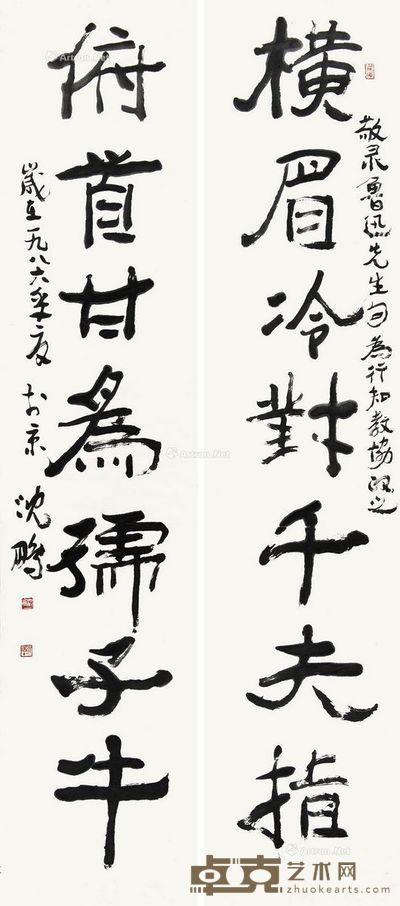 橫眉冷對千夫指
敬录魯迅先生句為行知教協正之
俯首甘為孺子牛
歲在一九八六年夏於京
沈鵬
Artron.Net
卓克艺术网
zhuokearts.com